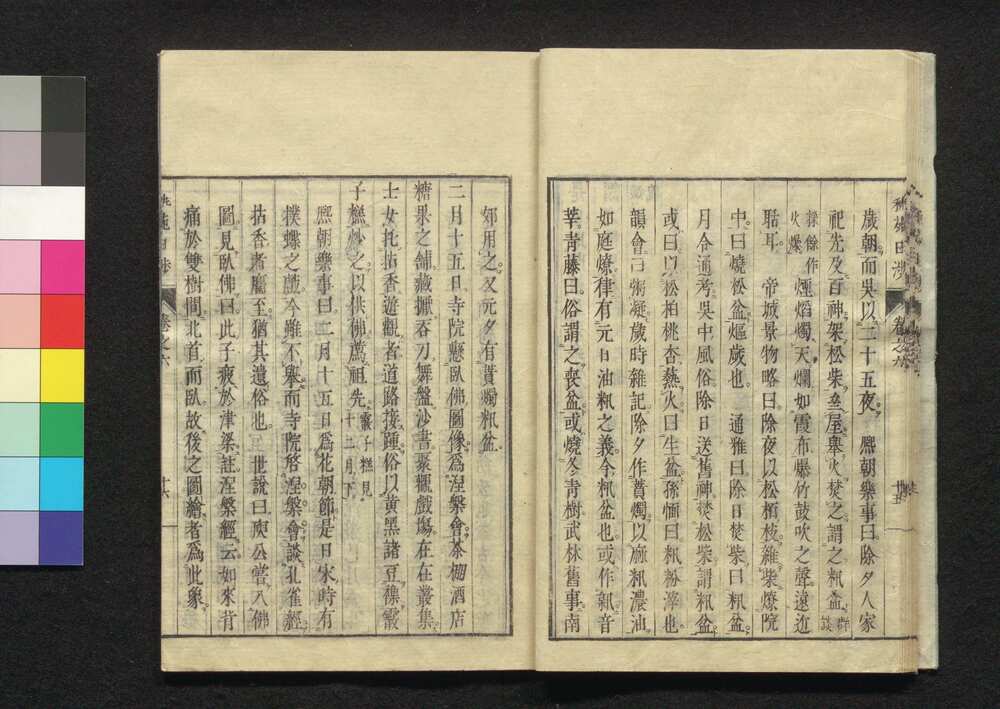 歲朝而吳以二十五夜　熈朝樂事曰除夕人家
祀先及百神架松柴𡌛屋舉火焚之謂之籸盆
煙熖燭天爛如霞布爆竹鼓吹之聲遠近
聒耳　帝城景物略曰除夜以松栢枝雜柴燎院
中曰燒松盆熰歲也　通雅曰除日焚柴曰籸盆
月令通考吳中風俗除日送舊神焚松柴謂籸盆
或曰以松柏桃杏𤍠火曰生盆孫愐曰籸粉滓也
韻會曰粥凝歲時雜記除夕作蕡燭以麻籸濃油
如庭燎律有元日油籸之義今籸盆也或作𥹥音
莘青藤曰俗謂之喪盆或燒冬青樹武林舊事南
郊用之又元夕有蕡燭籸盆
二月十五日寺院懸臥佛圖像爲涅槃會茶棚酒店
糖果之舖藏擫吞刀舞盤沙書聚觀戲塲在在叢集
士女托拈香遊觀者道路接踵俗以黄黑諸豆𥻦霰
子糕炒之以供佛薦祖先 霰子糕見十二月下
熈朝樂事曰二月十五日爲花朝節是日宋時有
撲蝶之戲今雖不舉而寺院啓涅槃會談孔雀經
拈香者麕至猶其遺俗也　世說曰庾公嘗入佛
圖見臥佛曰此子疲於津梁註涅槃經云如來背
痛於雙樹間北首而臥故後之圖繪者爲此象
卷之六
十六